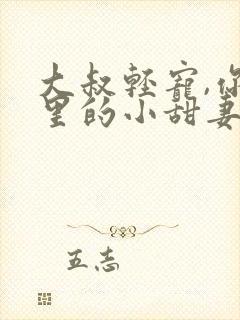 大叔輕寵,你
里的小甜妻
五志